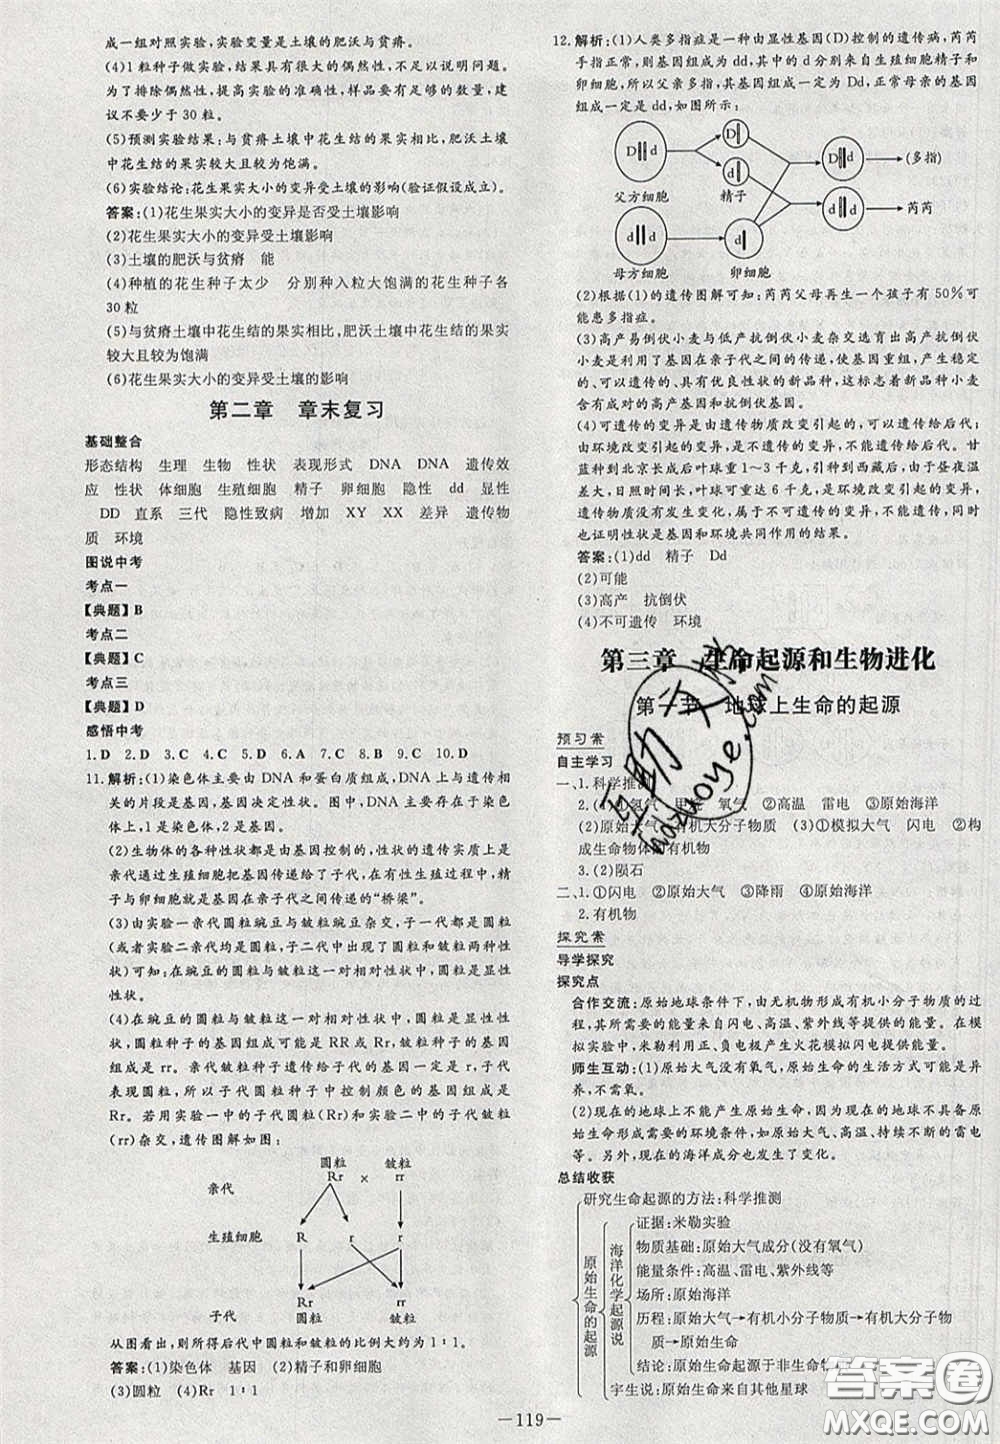 成一组对照实验,实验变量是土壤的肥沃与贫瘠。
(4)1粒种子做实验,结果具有很大的偶然性,不足以说明问题。
为了排除偶然性,提高实验的准确性,样品要有足够的数量,建
议不要少于30粒。
(5)预测实验结果:与贫瘠土壤中花生结的果实相比,肥沃土壤
中花生结的果实较大且较为饱满。
(6)实验结论:花生果实大小的变异受土壤的影响(验证假设成立)。
答案:(1)花生果实大小的变异是否受土壤影响
(2)花生果实大小的变异受土壤影响
(3)土壤的肥沃与贫瘠 能
(4)种植的花生种子太少 分别种入粒大饱满的花生种子各
30粒
(5)与贫瘠土壤中花生结的果实相比,肥沃土壤中花生结的果实
较大且较为饱满
(6)花生果实大小的变异受土壤的影响
第二章 章末复习
基础整合
形态结构 生理 生物 性状 表现形式 DNA DNA 遗传效
应 性状 体细胞 生殖细胞 精子 卵细胞 隐性 dd 显性
DD 直系 三代 隐性致病 增加 XY XX 差异 遗传物
质 环境
图说中考
考点一
【典题】B
考点二
【典题】C
考点三
【典题】D
感悟中考
1.D 2.D 3.C 4.C 5.D 6.A 7.C 8.B 9.C 10.D
11.解析:(1)染色体主要由DNA和蛋白质组成,DNA上与遗传相
关的片段是基因,基因决定性状。图中,DNA主要存在于染色
体上,1是染色体,2是基因。
(2)生物体的各种性状都是由基因控制的,性状的遗传实质上是
亲代通过生殖细胞把基因传递给了子代,在有性生殖过程中,精
子与卵细胞就是基因在亲子代之间传递的“桥梁”。
(3)由实验一亲代圆粒豌豆与皱粒豌豆杂交,子一代都是圆粒
(或者实验二亲代均是圆粒,子二代中出现了圆粒和皱粒两种性
状)可知:在豌豆的圆粒与皱粒这一对相对性状中,圆粒是显性
性状。
(4)在豌豆的圆粒与皱粒这一对相对性状中,圆粒是显性
性状,圆粒种子的基因组成可能是RR或Rr,皱粒种子的基因
组成是rr。亲代皱粒种子遗传给子代的基因一定是r,子代
表现圆粒,所以子代圆粒种子中控制颜色的基因组成是
Rr。若用实验一中的子代圆粒(Rr)和实验二中的子代皱粒
(rr)杂交,遗传图解如图:
圆粒 皱粒
亲代 Rr × rr
生殖细胞 R r r
Rr rr
子代 圆粒 皱粒
从图看出,则所得后代中圆粒和皱粒的比例大约为1∶1。
答案:(1)染色体 基因 (2)精子和卵细胞
(3)圆粒 (4)Rr 1∶1
12.解析:(1)人类多指症是一种由显性基因(D)控制的遗传病,芮芮
手指正常,则基因组成为dd,其中的d分别来自生殖细胞精子和
卵细胞,所以父亲多指,其基因组成一定为Dd,正常母亲的基因
组成一定是dd,如图所示:
D d D d D d (多指)
父方细胞 精子
d d d d d 芮芮
母方细胞 卵细胞
(2)根据(1)的遗传图解可知:芮芮父母再生一个孩子有50%可
能患多指症。
(3)高产易倒伏小麦与低产抗倒伏小麦杂交选育出高产抗倒伏
小麦是利用了基因在亲子代之间的传递,使基因重组,产生稳定
的、可以遗传的、具有优良性状的新品种,这标志着新品种小麦
含有成对的高产基因和抗倒伏基因。
(4)可遗传的变异是由遗传物质改变引起的,可以遗传给后代;
由环境改变引起的变异,是不可遗传的变异,不能遗传给后代。甘
蓝种到北京长成后叶球重1~3千克,引种到西藏后,由于昼夜温
差大,日照时间长,叶球可重达6千克,是环境改变引起的变异,
遗传物质没有发生变化,属于不可遗传的变异,不能遗传,同时
也证明性状是基因和环境共同作用的结果。
答案:(1)dd 精子 Dd
(2)可能
(3)高产 抗倒伏
(4)不可遗传 环境
第三章 生命起源和生物进化
第一节 地球上生命的起源
预习案
自主学习
一、1.科学推测
2.(1)①氢气 甲烷 氧气 ②高温 雷电 ③原始海洋
(2)原始大气 有机大分子物质 (3)①模拟大气 闪电 ②构
成生命物体的有机物
3.(2)陨石
二、1.①闪电 ②原始大气 ③降雨 ④原始海洋
2.有机物
探究案
导学探究
探究点
合作交流:原始地球条件下,由无机物形成有机小分子物质的过
程,其所需要的能量来自闪电、高温、紫外线等提供的能量。在模
拟实验中,米勒利用正、负电极产生火花模拟闪电提供能量。
师生互动:(1)原始大气中没有氧气,原始生命的生活方式可能
是厌氧型。
(2)现在的地球上不能产生原始生命,因为现在的地球不具备原
始生命形成需要的环境条件,如原始大气、高温、持续不断的雷电
等。另外,现在的海洋成分也发生了变化。
总结收获
研究生命起源的方法:科学推测
原始生命的起源
海洋化学起源说
证据:米勒实验
物质基础:原始大气成分(没有氧气)
能量条件:高温、雷电、紫外线等
场所:原始海洋
历程:原始大气→有机小分子物质→有机大分子物
质→原始生命
结论:原始生命起源于非生命物
宇生说:原始生命来自其他星球
—119—
互助文档
hdzuoye.com
答案圈
MXQE.COM